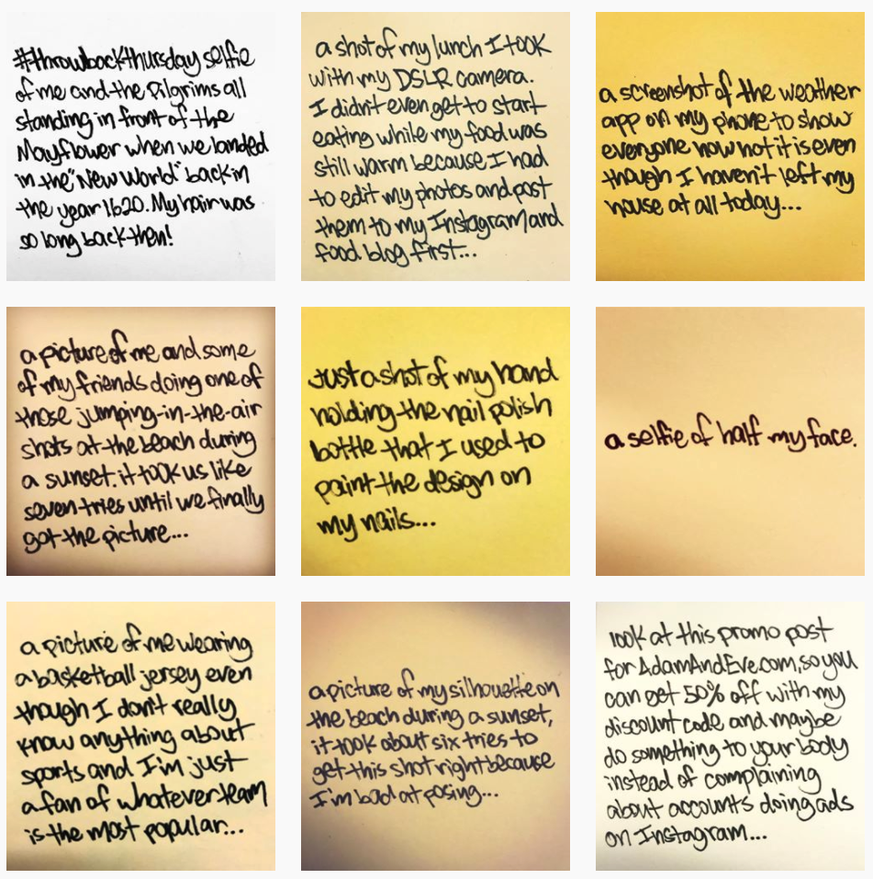 #throwbackthursday selfie
of me and the Pilgrims all
standing in front of the
Mayflower when we landed
in the "New World" back in
the year 1620. My hair was
so long back then!
a shot of my lunch I took
with my DSLR camera.
I didn't even get to start
eating while my food was
still warm because I had
to edit my photos and post
them to my Instagram and
food blog first...
a screenshot of the weather
app on my phone to show
everyone how hot it is even
though I haven't left my
house at all today...
a picture of me and some
of my friends doing one of
those jumping-in-the-air
shots at the beach during
a sunset. it took us like
seven tries until we finally
got the picture...
Just a shot of my hand
holding the nail polish
bottle that I used to
paint the design on
my nails...
a selfie of half my face.
a picture of me wearing
a basketball jersey even
though I don't really
know anything about
sports and I'm just
a fan of whatever team
is the most popular...
a picture of my silhouette on
the beach during a sunset,
it took about six tries to
get this shot right because
I'm bad at posing...
look at this promo post
for AdamAndEve.com, so you
can get 50% off with my
discount code and maybe
do something to your body
instead of complaining
about accounts doing ads
on Instagram...